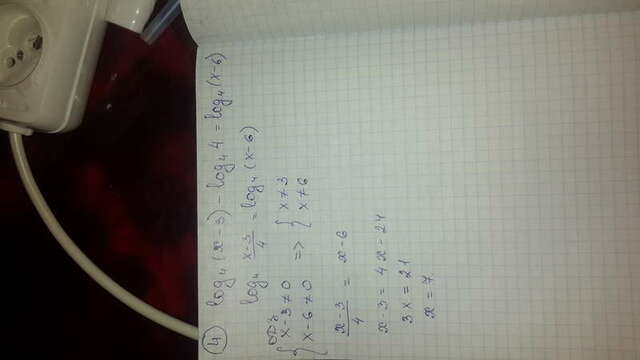 ④ log₄(x-3) - log₄4 = log₄(x-6)
log₄ x-3/4 = log₄(x-6)
ОДЗ
{ x-3≠0 => { x≠3
{ x-6≠0 { x≠6
x-3/4 = x-6
x-3 = 4x-24
3x = 21
x = 7